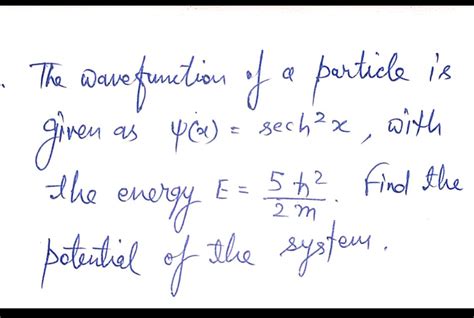 . The wavefunction of a particle is
given as ψ(x) = sech²x, with
the energy E = 5ħ²/2m. Find the
potential of the system.